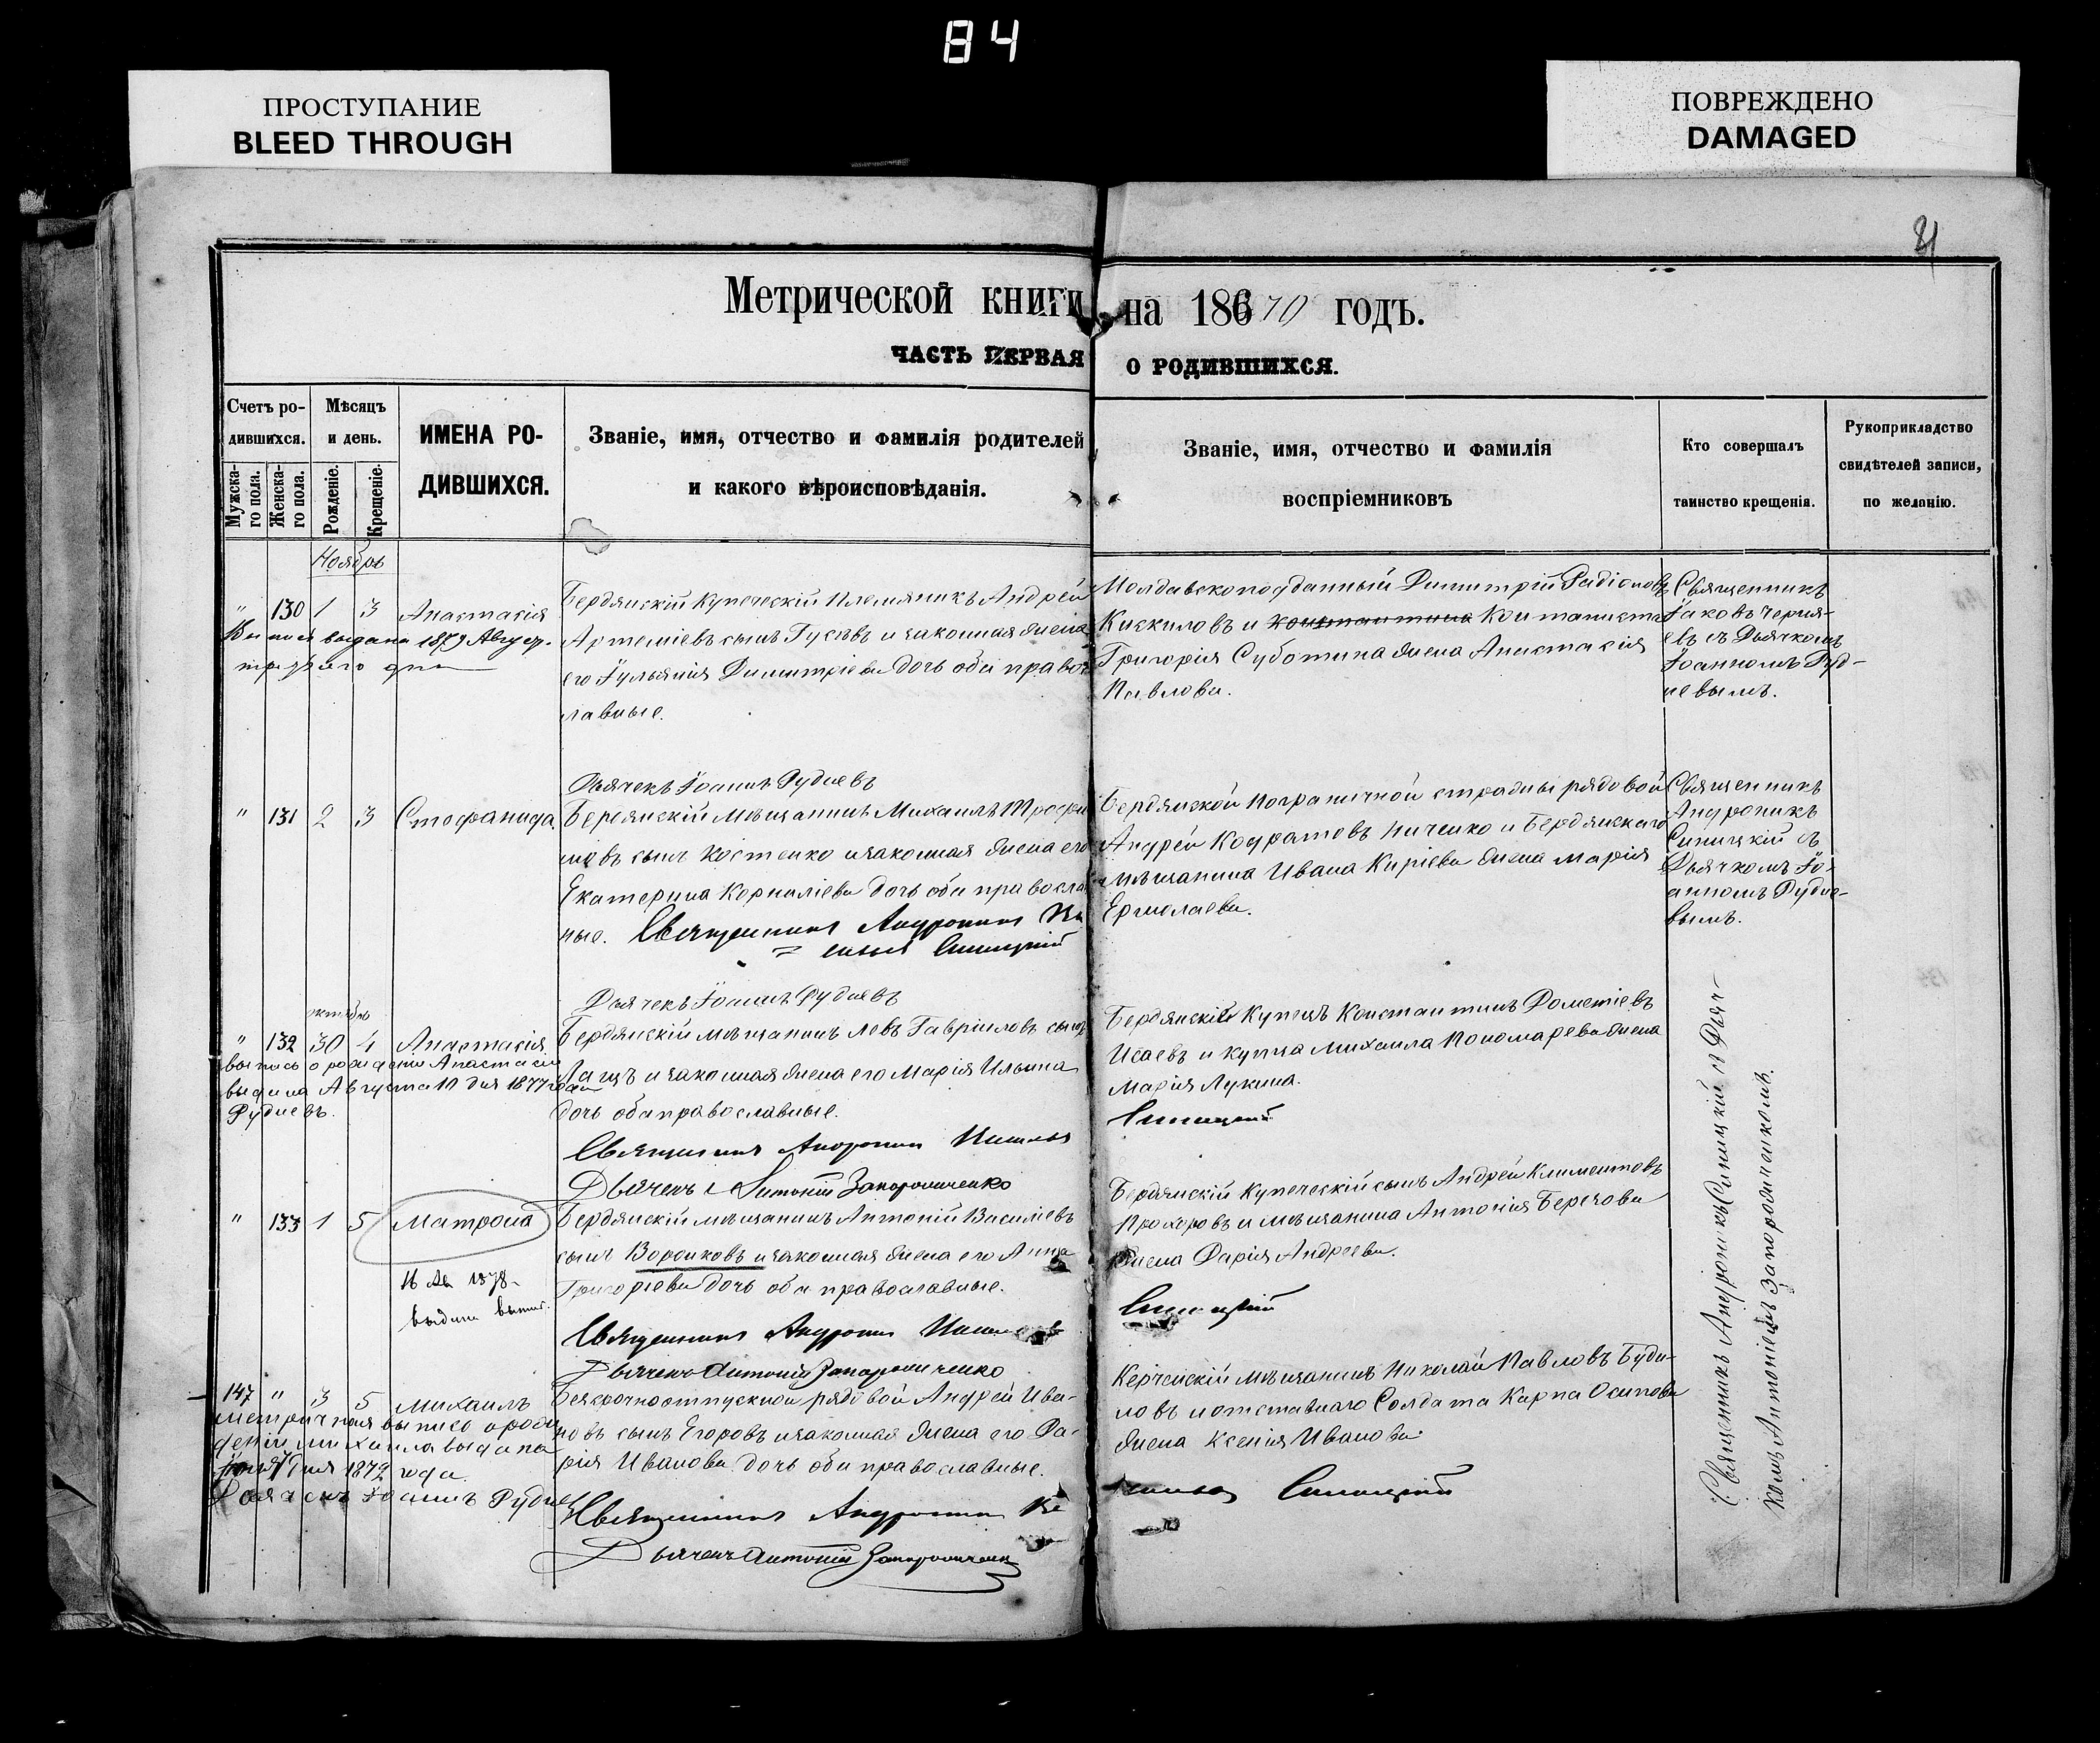 84
ПРОСТУПАНИЕ
BLEED THROUGH
ПОВРЕЖДЕНО
DAMAGED
Метрической книги на 18670 годъ.
ЧАСТЬ ПЕРВАЯ О РОДИВШИХСЯ.
Счетъ ро-
дившихся.
Мужска-
го пола.
Женска-
го пола.
Мѣсяцъ
и день.
Рожденіе.
Крещеніе.
ИМЕНА РО-
ДИВШИХСЯ.
Званіе, имя, отчество и фамилія родителей
и какого вѣроисповѣданія.
Званіе, имя, отчество и фамилія
воспріемниковъ
Кто совершалъ
таинство крещенія.
Рукоприкладство
свидѣтелей записи,
по желанію.
Ноябрь
" 130 1 3 Анастасія
выдана 1879 Август.
Бердянскій Купеческій Племяникъ Андрей
Артеміевъ сынъ Гусевъ и законная жена
его Іульянія Димитріева дочь оба правос
лавные.
Молдавскоподанный Димитрій Радіоновъ
и константина Контаниста
Григорія Суботина жена Анастасія
Павлова.
Священникъ
Іаковъ Черня-
евъ съ Дьячкомъ
Іоанномъ Руд-
невымъ.
Дьячекъ Іоаннъ Рудневъ
" 131 2 3 Стефанида.
Бердянскій мѣщанинъ Михаилъ Трофи
мовъ сынъ Костенко и законная жена его
Екатерина Корниліева дочь оба правосла
ные. Священникъ Андроникъ
Синицкій
Бердянской пограничной стражи рядовой
Андрей Кодратовъ Ниченко и Бердянскаго
мѣщанина Ивана Киріева жена Марія
Ермолаева.
Священникъ
Андроникъ
Синицкій съ
Дьячкомъ Іо-
анномъ Рудне-
вымъ.
Дьячекъ Іоаннъ Рудневъ
октябр
" 132 30 4 Анастасія
выпись о рожденіи Анастасіи
выдана Августа 10 дня 1877 года
Рудневъ.
Бердянскій мѣщанинъ Левъ Гавриловъ сынъ
и законная жена его Марія Ильина
дочь оба православные.
Священникъ Андроникъ
Дьячекъ Антоній Запорожченко
Бердянскій Купецъ Константинъ Дометіевъ
Исаевъ и купца Михаила Пономарева жена
Марія Лукина.
Синицкій
" 133 1 5 Матрона
16 Ав 1878
выдана выпис.
Бердянскій мѣщанинъ Антоній Василіевъ
сынъ Воронковъ и законная жена его Анна
Григоріева дочь оба православные.
Священникъ Андроникъ
Дьячекъ Антоній Запорожченко
Бердянскій Купеческій сынъ Андрей Климентовъ
Прохоровъ и мѣщанина Антонія Берегова
жена Дарія Андреева.
Синицкій
147 " 3 5 Михаилъ
метричная выпись о рож
деніи Михаила выдана
дня 1872 года
Дьячекъ Іоаннъ Рудне
Безсрочноотпускной рядовой Андрей Ива-
новъ сынъ Егоровъ и законная жена его Да-
рія Иванова дочь оба православные.
Священникъ Андроникъ
Дьячекъ Антоній Запорожченк
Керченскій мѣщанинъ Николай Павловъ Буди-
ловъ и отставнаго Солдата Карпа Осипова
жена Ксенія Иванова
Синицкій
Священникъ Андроникъ Синицкій съ Дьяч-
комъ Антоніемъ Запорожченкомъ.